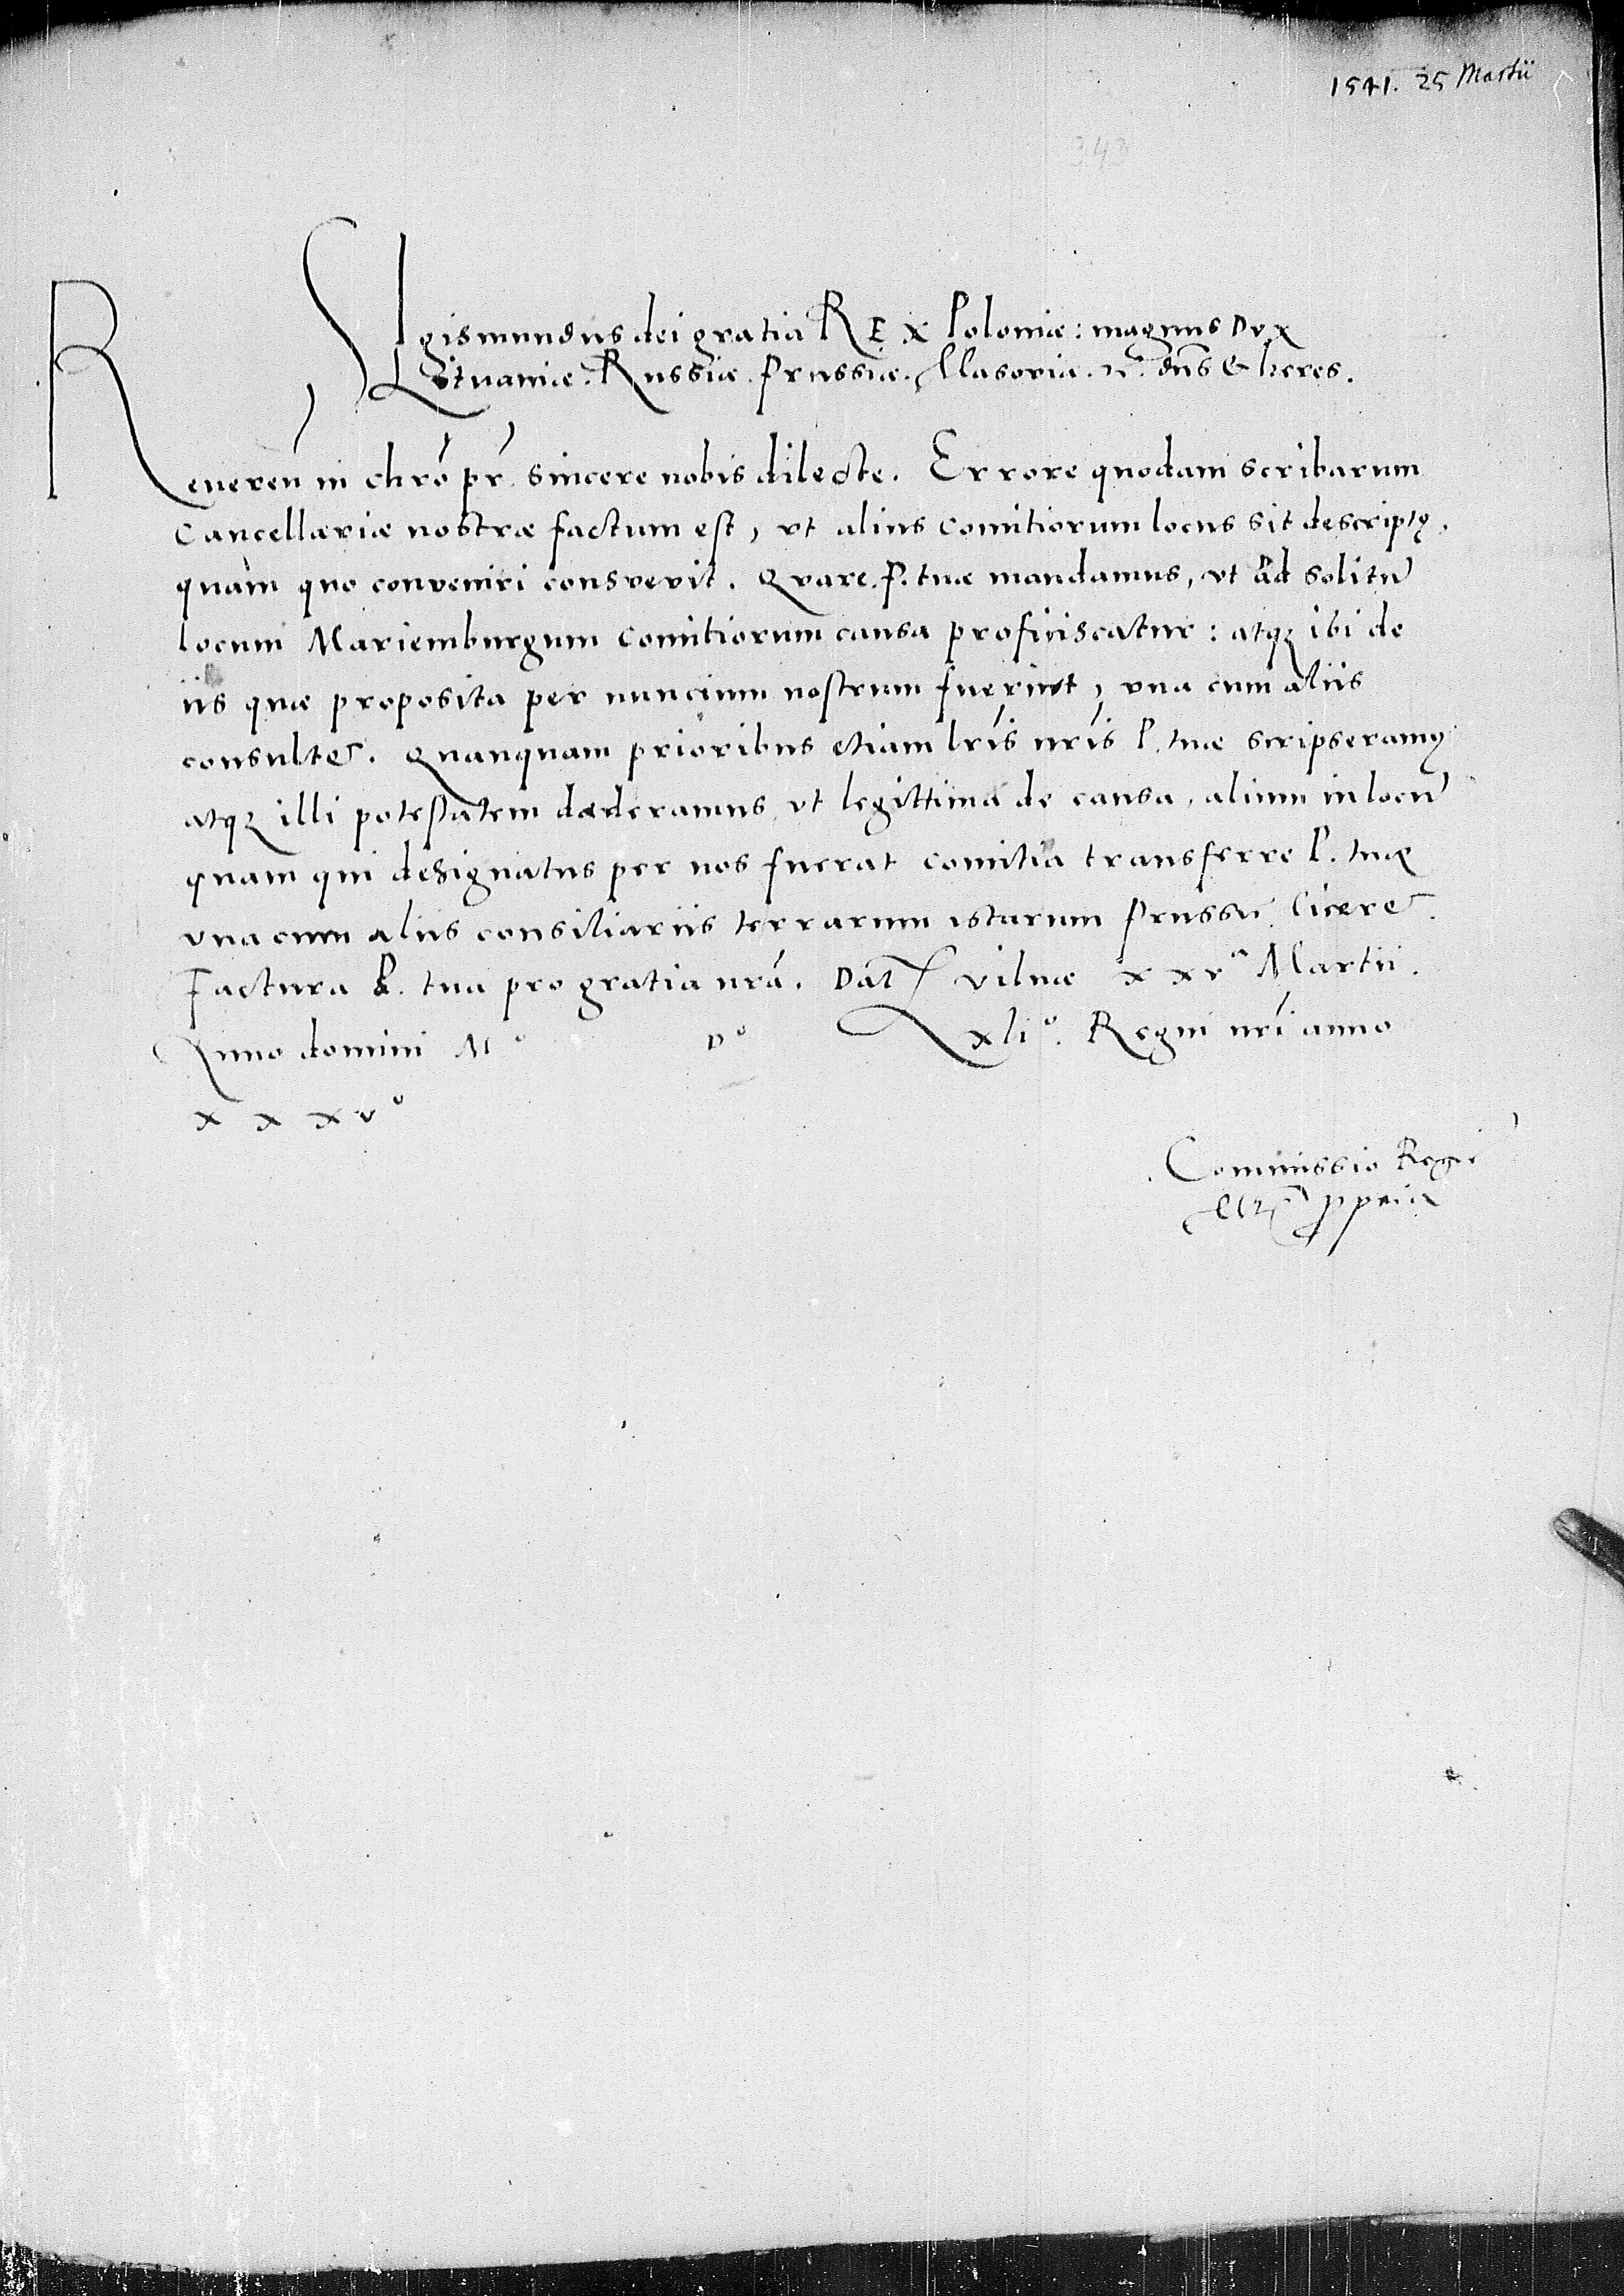 1541. 25 Martii
343
SIgismundus dei gratia REX Poloniæ: magnus Dvx
Lituaniæ. Russiæ. Prussiæ. Masoviæ. &c. dn̄s & heres.
Reveren̄ in chrō pr̄. sincere nobis dilecte. Errore quodam scribarum
Cancellariæ nostræ factum est, vt alius comitiorum locus sit descriptꝰ.
quàm quo conveniri consvevit. Qvare. P. tuæ mandamus, vt ad solitū
locum Mariemburgum comitiorum causa proficiscatur: atqꝫ ibi de
iis quæ proposita per nuncium nostrum fuerint, vna cum aliis
consultet. Quanquam prioribus etiam lr̄is nr̄is P. tuæ scripseramꝰ
atqꝫ illi potestatem dæderamus, vt legittima de causa, alium in locū
quam qui designatus per nos fuerat comitia transferre P. tuæ
vna cum aliis consiliariis terrarum istarum Prussiæ liceret.
Factura P. tua pro gratia nr̄a. Dat Vilnæ xxvᵃ Martii.
Anno domini Mº Dº xliº. Regni nr̄i anno
xxxvº
Commissio Regiæ
Mtis ppria